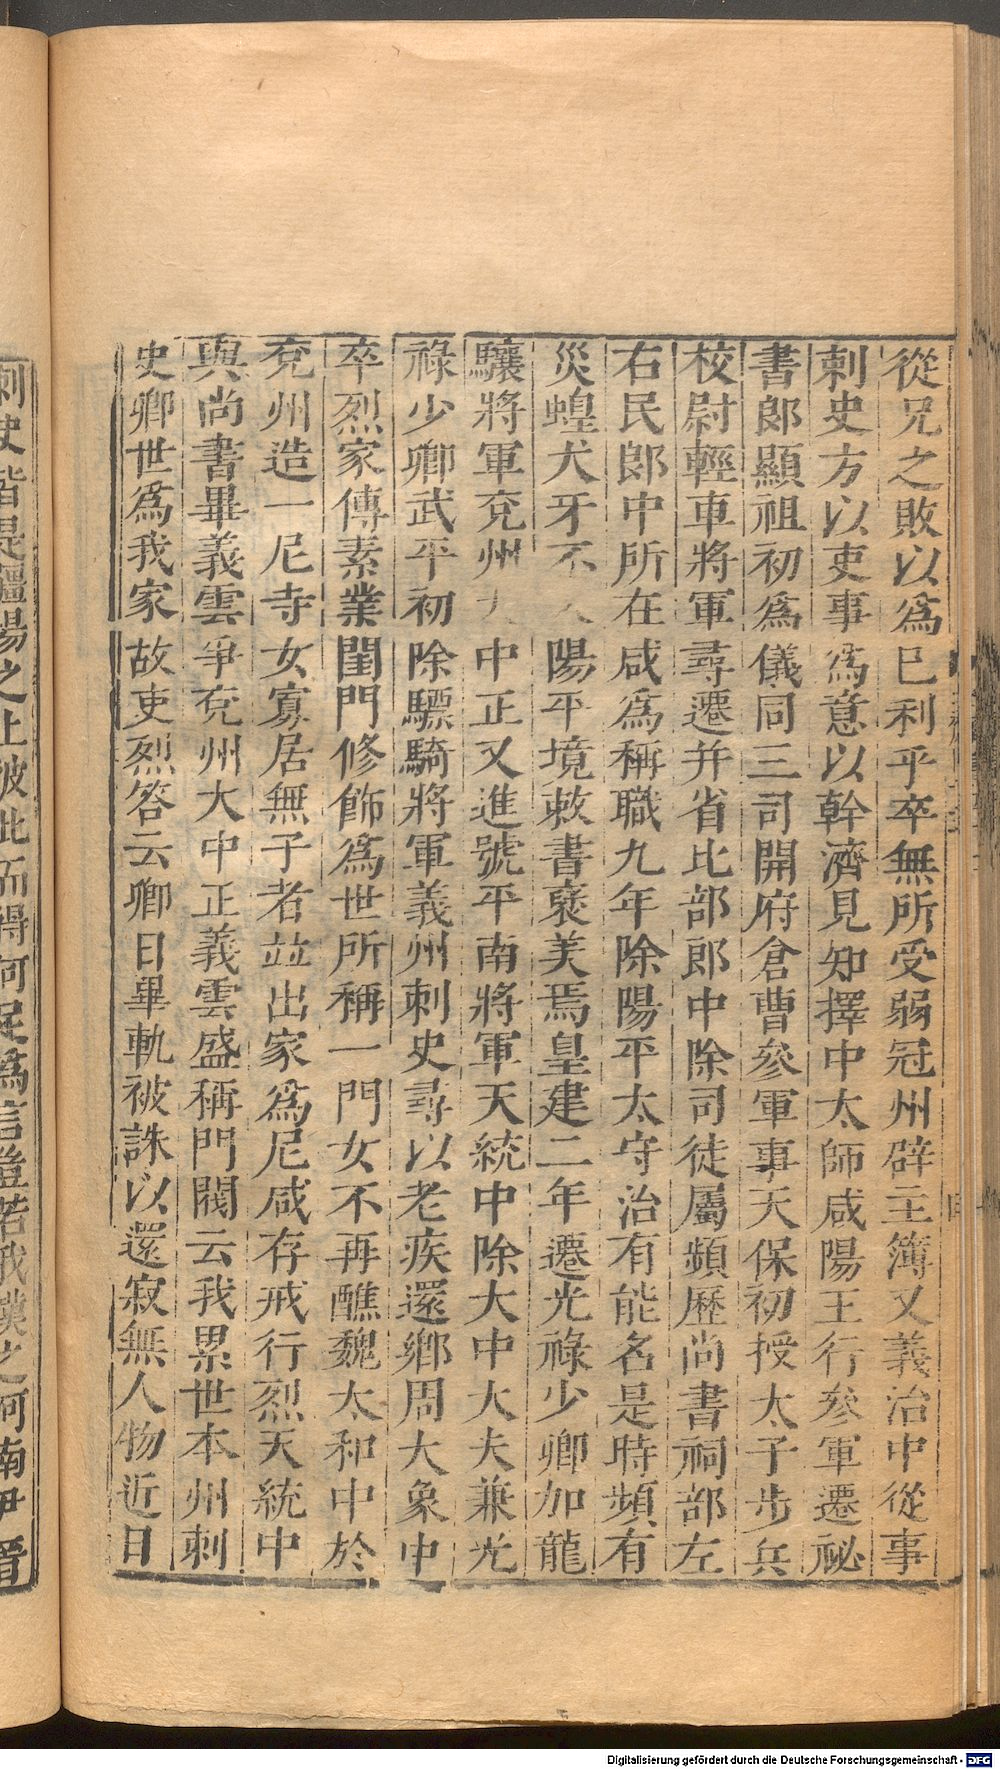 從兄之敗以爲已利乎卒無所受弱冠州辟主簿又義治中從事
刺史方以吏事爲意以幹濟見知擇中太師咸陽王行參軍遷祕
書郎顯祖初爲儀同三司開府倉曹參軍事天保初授太子步兵
校尉輕車將軍尋遷并省比部郎中除司徒屬頻歷尚書祠部左
右民郎中所在咸爲稱職九年除陽平太守治有能名是時頻有
災蝗犬牙不入陽平境敕書褒美焉皇建二年遷光祿少卿加龍
驤將軍兗州大中正又進號平南將軍天統中除大中大夫兼光
祿少卿武平初除驃騎將軍義州刺史尋以老疾還鄉周大象中
卒烈家傳素業閨門修飾爲世所稱一門女不再醮魏太和中於
兗州造一尼寺女寡居無子者並出家爲尼咸存戒行烈天統中
與尚書畢義雲爭兗州大中正義雲盛稱門閥云我累世本州刺
史卿世爲我家故吏烈答云卿日畢軌被誅以還寂無人物近日
刺史皆是疆場之上彼此而得何足爲言豈若我漢之河南尹晉
Digitalisierung gefördert durch die Deutsche Forschungsgemeinschaft - DFG